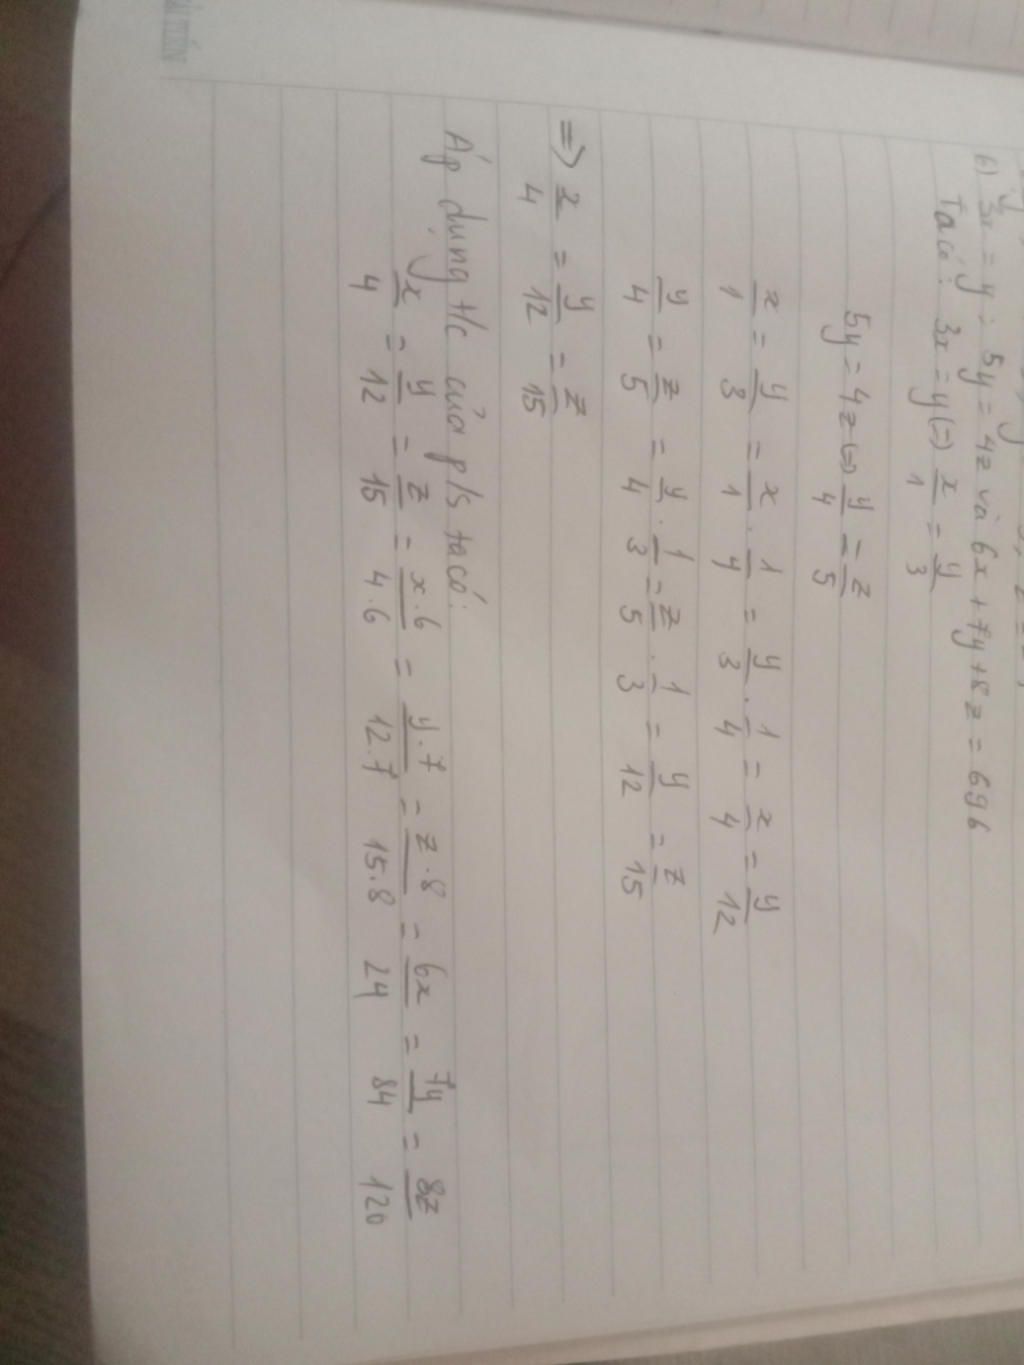 b) 3x = y ; 5y = 4z và 6x + 7y + 8z = 696
Ta có: 3x = y (=) x/1 = y/3
5y = 4z (=) y/4 = z/5
x/1 = y/3 = x/1 . 1/4 = y/3 . 1/4 = x/4 = y/12
y/4 = z/5 = y/4 . 1/3 = z/5 . 1/3 = y/12 = z/15
=> x/4 = y/12 = z/15
Áp dụng t/c của p/s ta có:
x/4 = y/12 = z/15 = x.6/4.6 = y.7/12.7 = z.8/15.8 = 6x/24 = 7y/84 = 8z/120